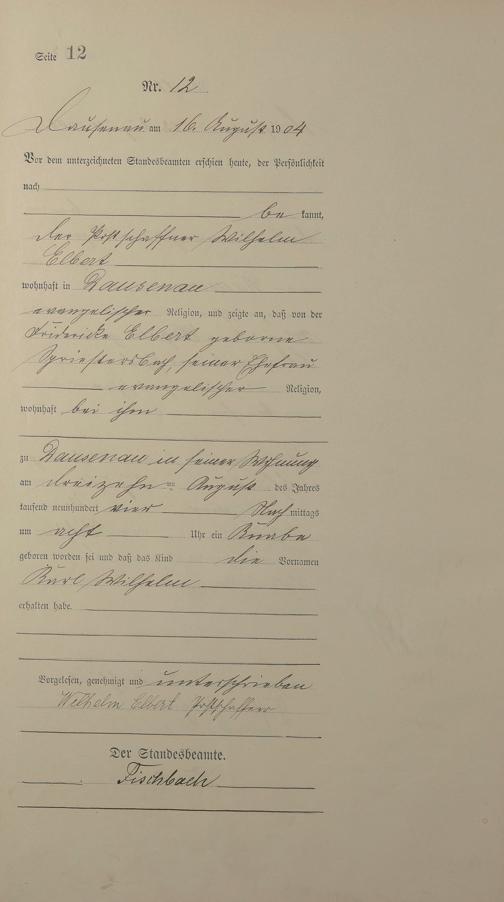 Seite 12
Nr. 12
Dausenau am 16. August 1904
Vor dem unterzeichneten Standesbeamten erschien heute, der Persönlichkeit
nach
be kannt,
der Postschaffner Wilhelm
Elbert
wohnhaft in Dausenau
evangelischer Religion, und zeigte an, daß von der
Friedericke Elbert geborne
Spriestersbach, seiner Ehefrau
evangelischer Religion,
wohnhaft bei ihm
zu Dausenau in seiner Wohnung
am dreizehn ten August des Jahres
tausend neunhundert vier Nach mittags
um acht Uhr ein Knabe
geboren worden sei und daß das Kind die Vornamen
Karl Wilhelm
erhalten habe.
Vorgelesen, genehmigt und unterschrieben
Wilhelm Elbert Postschaffner
Der Standesbeamte.
Fischbach